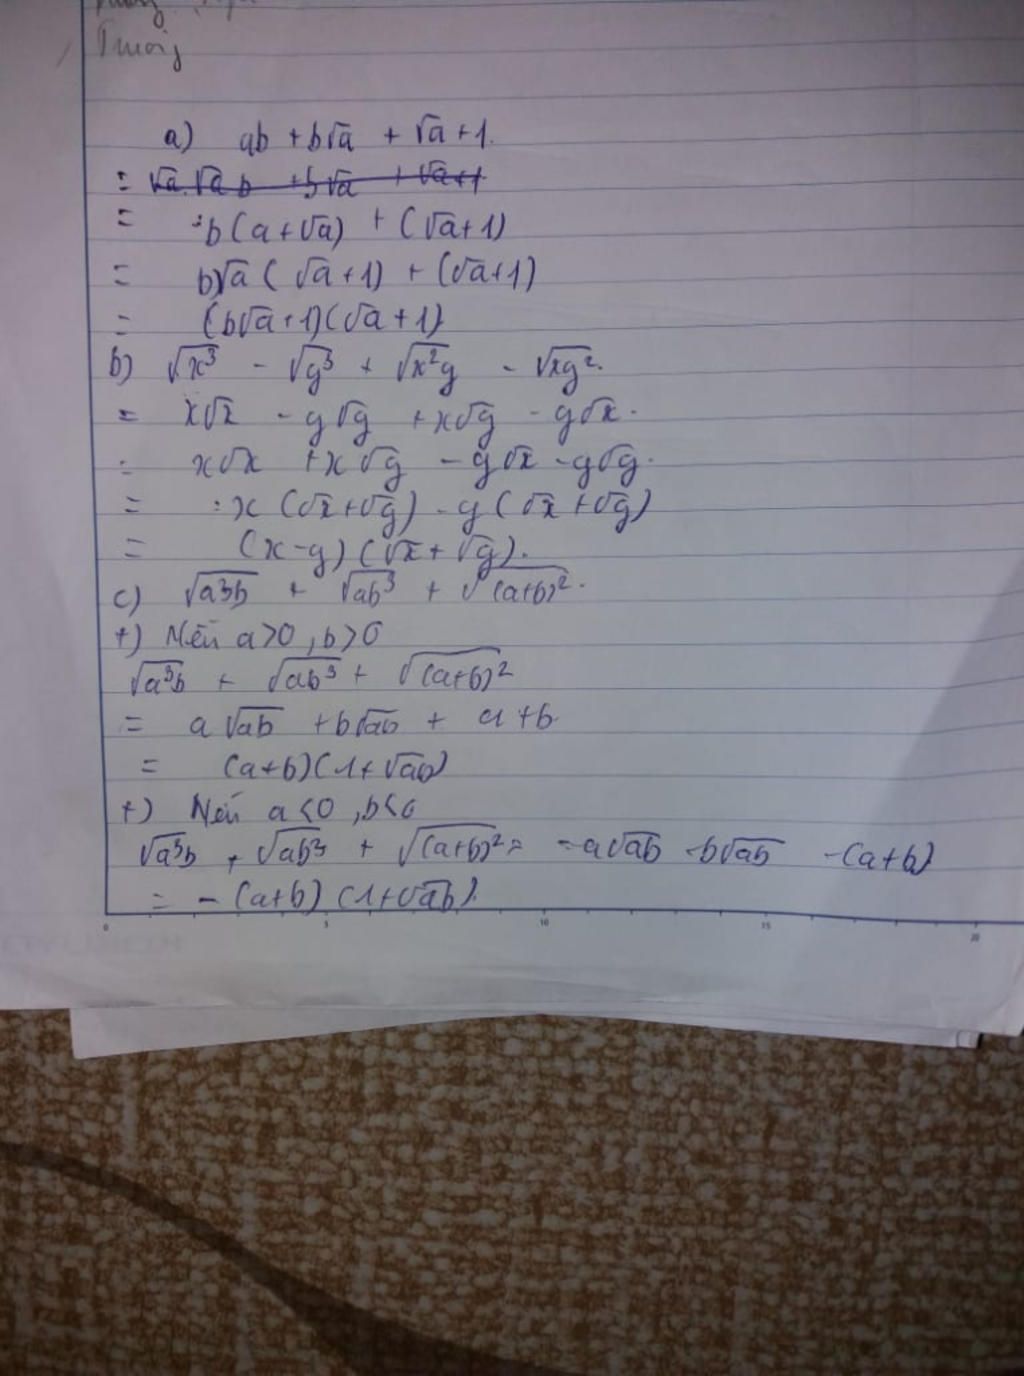 Trường
a) ab + b√a + √a + 1.
= √a.√a b + b√a + √a + 1
= b(a+√a) + (√a+1)
= b√a (√a+1) + (√a+1)
= (b√a+1)(√a+1)
b) √x³ - √y³ + √x²y - √xy².
= x√x - y√y + x√y - y√x.
= x√x + x√y - y√x - y√y.
= x(√x+√y) - y(√x+√y)
= (x-y)(√x+√y).
c) √a³b + √ab³ + √(a+b)².
+) Nếu a>0, b>0
√a³b + √ab³ + √(a+b)²
= a√ab + b√ab + a+b.
= (a+b)(1+√ab)
+) Nếu a<0, b<0
√a³b + √ab³ + √(a+b)² = -a√ab -b√ab -(a+b)
= -(a+b)(1+√ab).
0 5 10 15 20